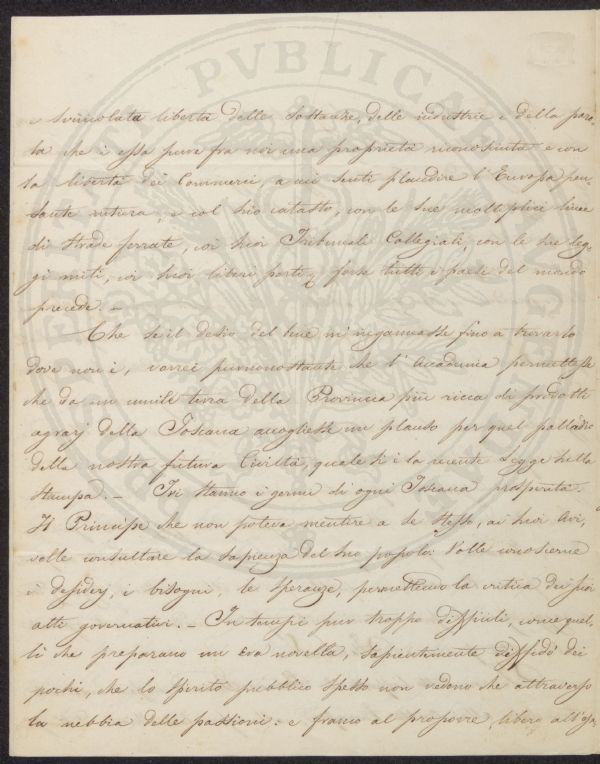 e svincolata libertà delle sostanze, delle industrie e della paro-
la che è essa pure fra noi una proprietà riconosciuta e con
la libertà dei Commerci, a cui sentì plaudire l'Europa pen-
sante intiera, e col suo catasto, con le sue molteplici linee
di strade ferrate, coi suoi Tribunali Collegiali, con le sue leg-
gi miti, coi suoi liberi porti, forse tutti i paesi del mondo
precede. –
Che se il desio del bene m'ingannasse fino a trovarlo
dove non è, vorrei purnonostante che l'Accademia permettesse
che da un umile terra della Provincia più ricca di prodotti
agrarj della Toscana accogliesse un plauso per quel palladio
della nostra futura Civiltà, quale si è la recente Legge sulla
stampa. – Ivi stanno i germi di ogni Toscana prosperità.
Il Principe che non poteva mentire a se stesso, ai suoi Avi,
volle consultare la sapienza del suo popolo: Volle conoscerne
i desiderj, i bisogni, le speranze, permettendo la critica dei suoi
atti governativi. – In tempi pur troppo difficili, come quel-
li che preparano un Era novella, sapientemente diffidò dei
pochi, che lo spirito pubblico spesso non vedono che attraverso
la nebbia delle passioni: e franco al proporre, libero all'
PVBLICAE